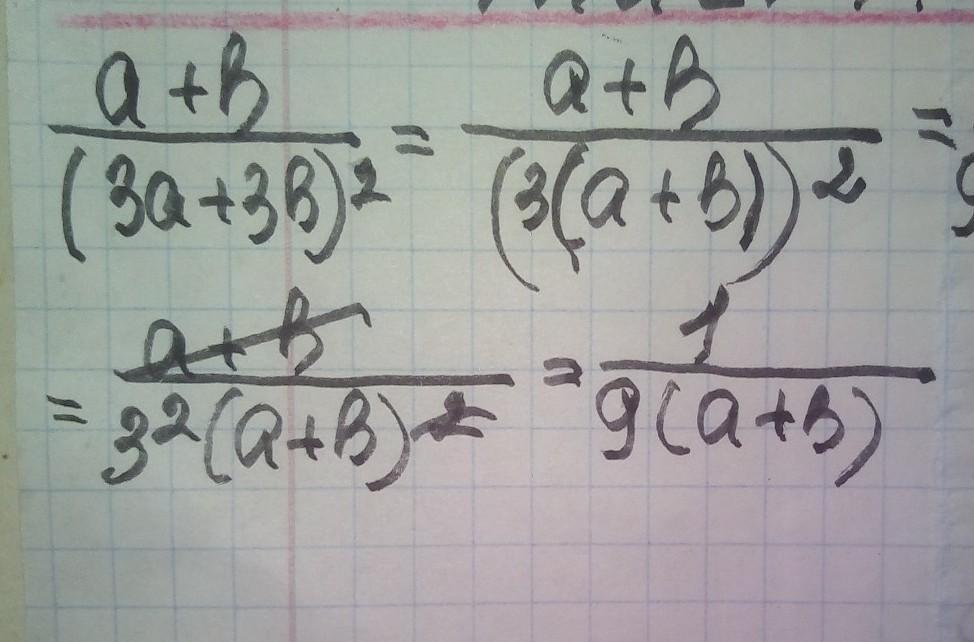 a+b/(3a+3b)² = a+b/(3(a+b))² =
= a+b/3²(a+b)² = 1/9(a+b)